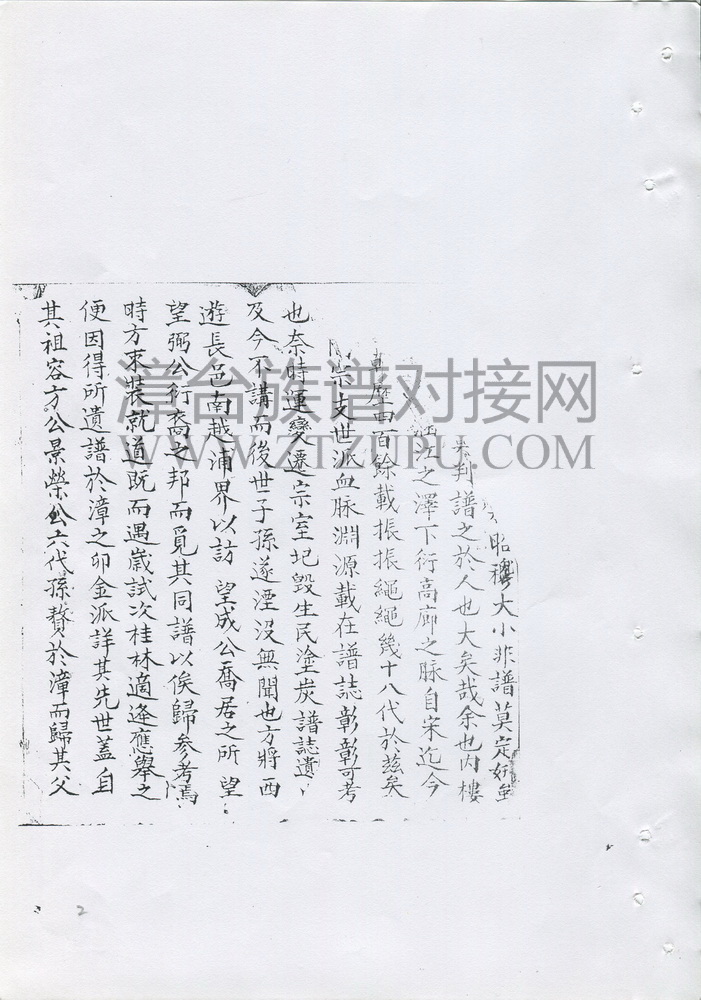 昭穆大小非譜莫定好
判譜之於人也大矣哉余也内樓
之澤下衍高廊之脉自宋迄今
歷四百餘載振振繩繩幾十八代於茲矣
宗支世派血脉淵源載在譜誌彰彰可考
也奈時運變遷宗室圮毀生民塗炭譜誌遺
及今不講而後世子孫遂湮沒無聞也方將西
遊長邑南越浦界以訪望成公喬居之所望
望弼公衍裔之邦而覓其同譜以俟歸參考焉
時方束裝就道既而遇歲試次桂林適逢應舉之
便因得所遺譜於漳之卯金派詳其先世蓋自
其祖容方公景榮公六代孫贅於漳而歸其父
漳台族谱对接网
WWW.ZTZUPU.COM
2